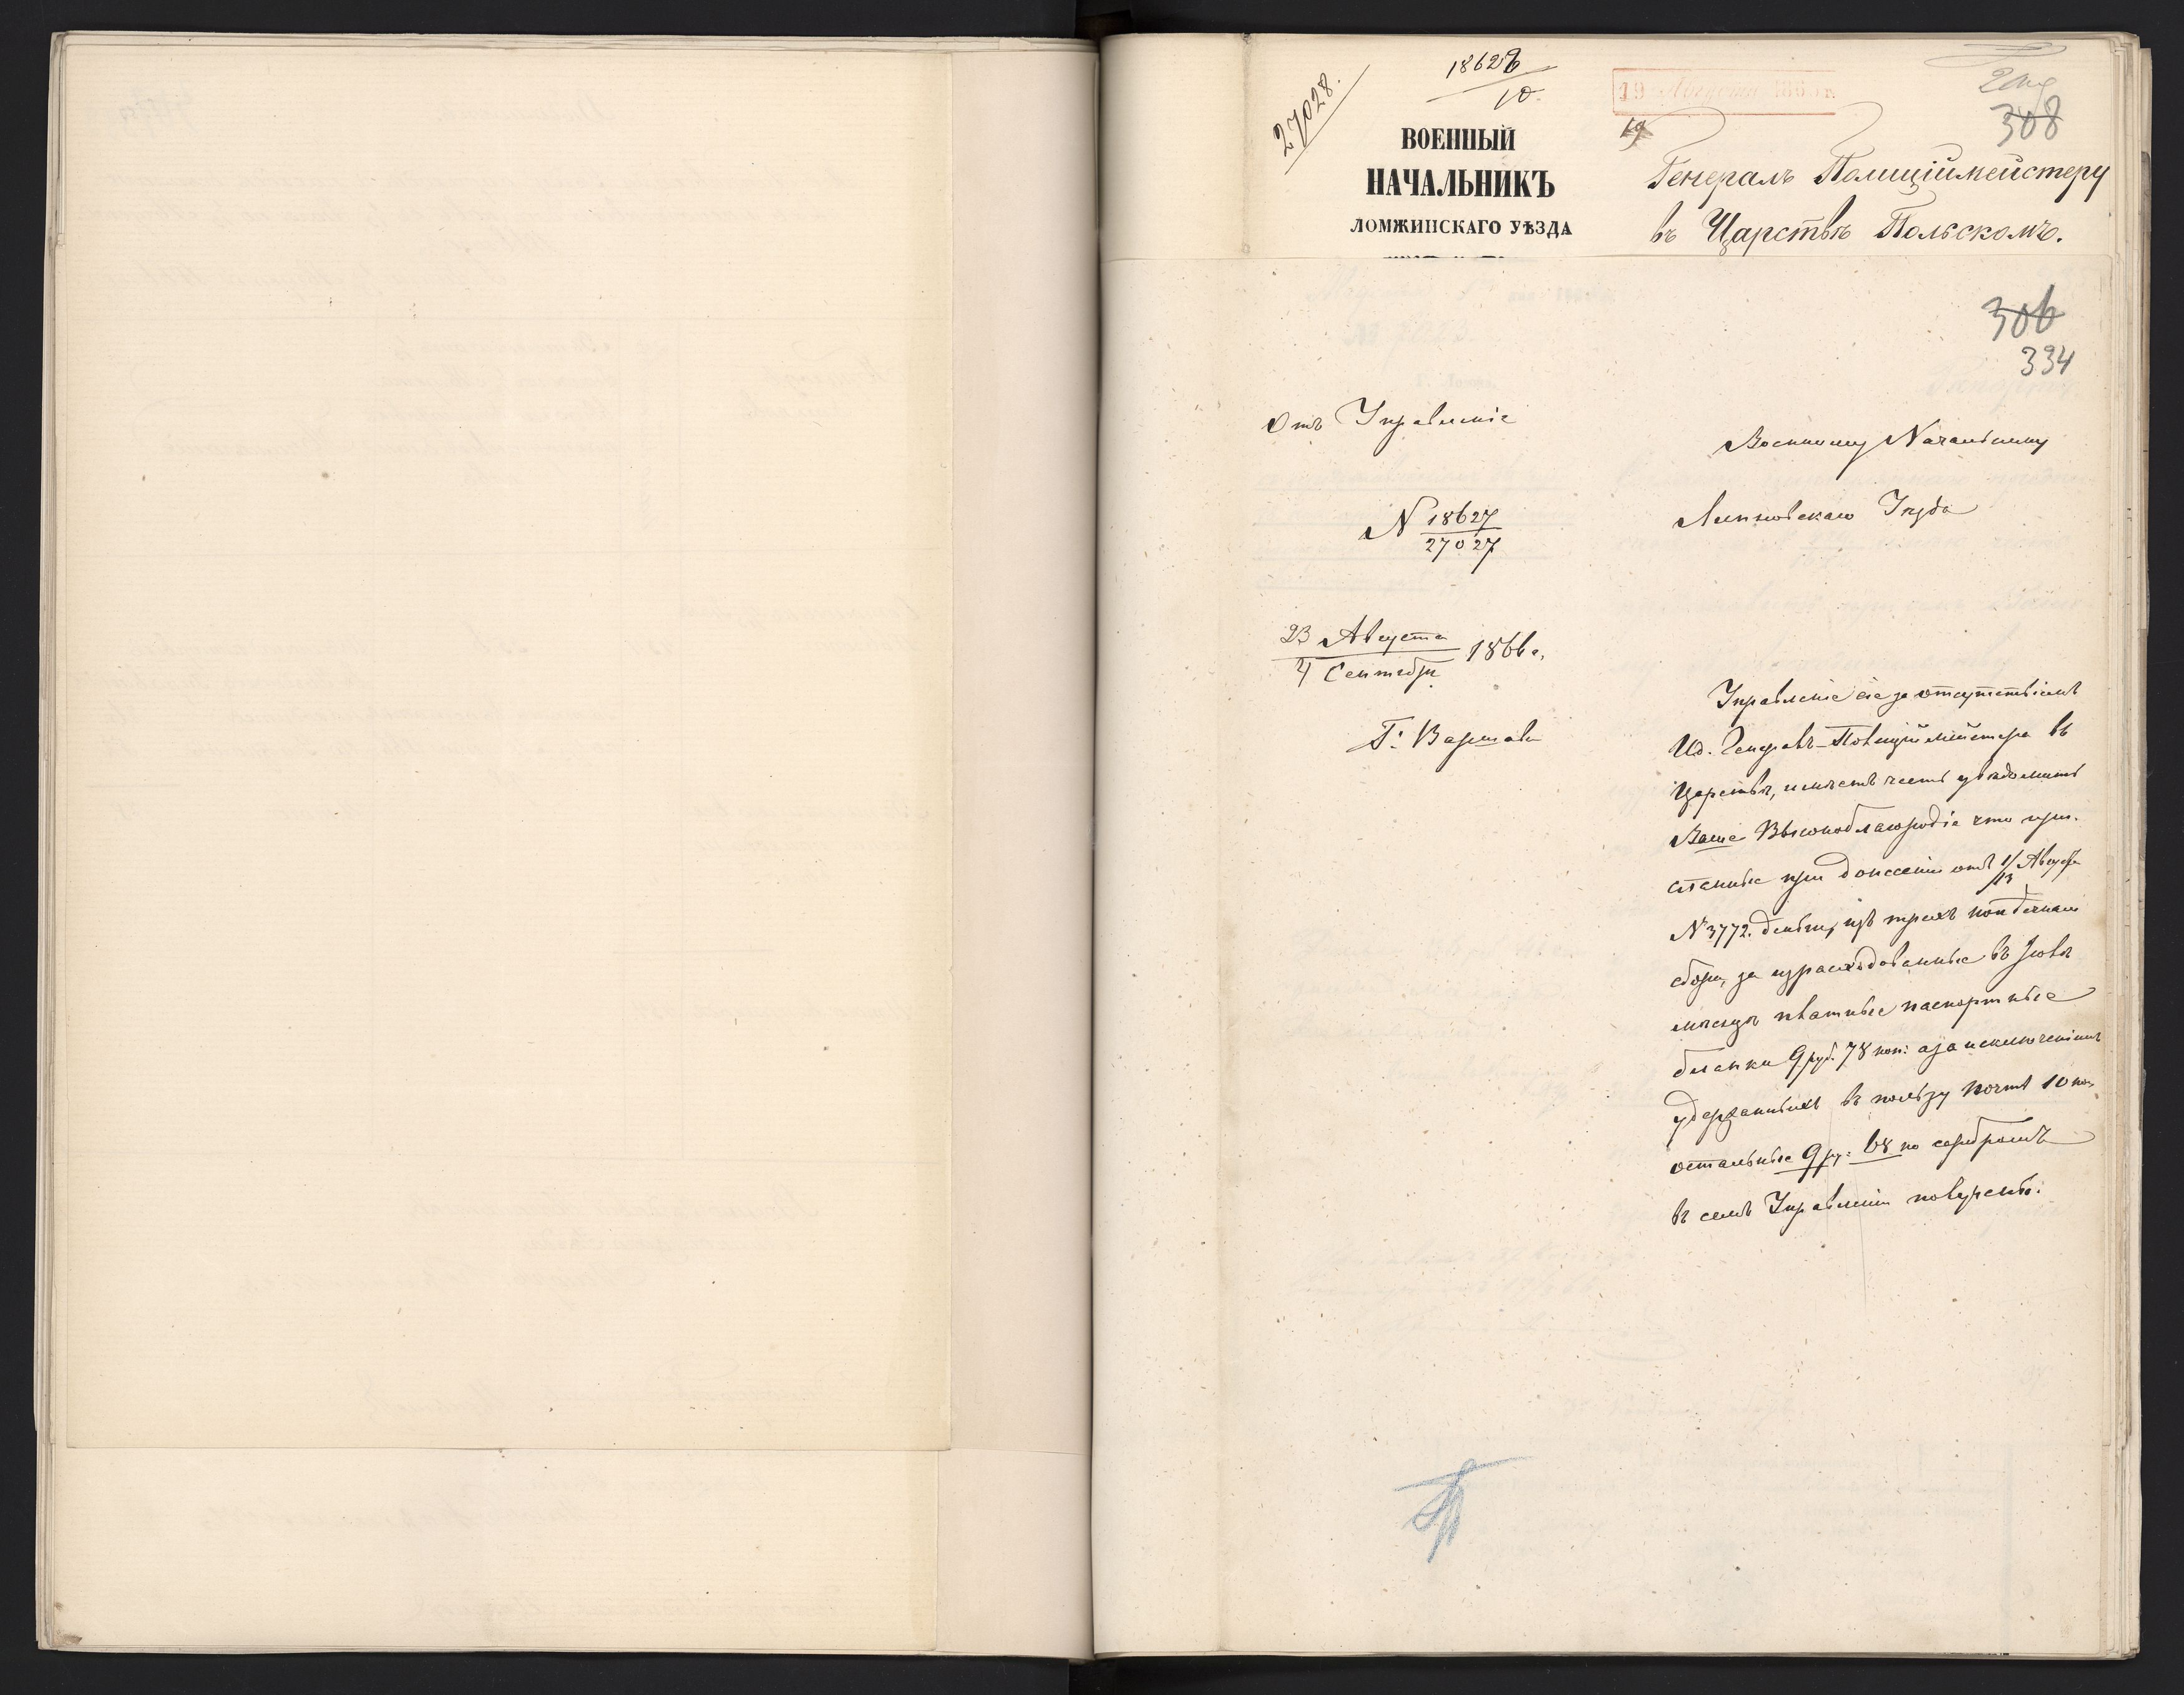 27028.
18628
10.
19 Августа 186 г.
308
ВОЕННЫЙ
НАЧАЛЬНИКЪ
ЛОМЖИНСКАГО УѢЗДА
19
Генералъ Полиціймейстеру
въ Царствѣ Польскомъ.
306
334
Отъ Управленія
N 18627
27027
23 Августа
4 Сентября 1866 г.
Г: Варшава
Военному Начальнику
Липновскаго Уѣзда
Управленіе сіе за отсутствіемъ
Ид. Генералъ-Полиціймейстера въ
Царствѣ, имѣетъ честь увѣдомить
Ваше Высокоблагородіе что при-
сланные при донесеніи отъ 1/13 Августа
N 3772. деньги, изъ трехъ копѣечнаго
сбора, за израсходованные въ Іюлѣ
мѣсяцѣ платные паспортные
бланки 9 руб. 78 коп: а за исключеніемъ
удержанныхъ въ пользу почты 10 ко,
остальные 9 ру: 68 ко серебромъ
въ семъ Управленіи получены.